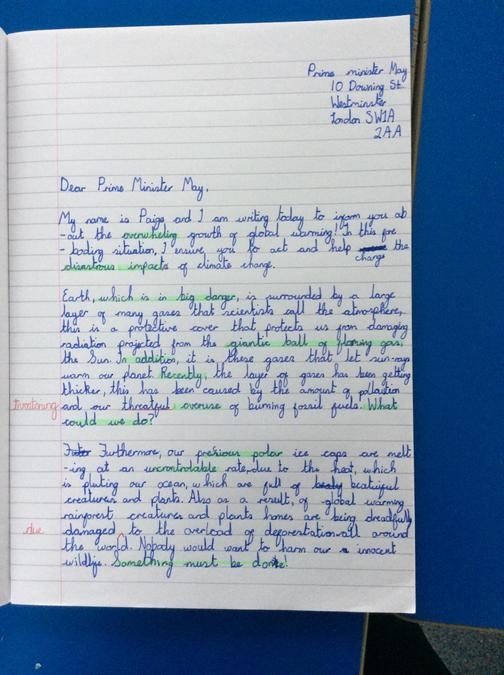 Prime minister May
10 Downing St
Westminster
London SW1A
2AA
Dear Prime Minister May,
My name is Paige and I am writing today to inform you ab
-out the overwheling growth of global warming! In this fore
-boding situation, I ensure you to act and help change the
disastrous impacts of climate change.
Earth, which is in big danger, is surrounded by a large
layer of many gases that scientists call the atmosphere,
this is a protective cover that protects us from damaging
radiation projected from the giantic ball of flaming gas,
the Sun. In addition, it is these gases that let sun-rays
warm our planet. Recently, the layer of gases has been getting
thicker, this has been caused by the amount of pollution
threatening and our threatful overuse of burning fossil fuels. What
could we do?
Furthermore, our prexious polar ice caps are melt
-ing at an uncontrolable rate, due to the heat, which
is pluting our ocean, which are full of beatuiful
creatures and plants. Also as a result, of global warming
rainforest creatures and plants homes are being dreadfully
due damaged to the overload of deforestation all around
the world. Nobody would want to harm our inocent
wildlife. Something must be done!